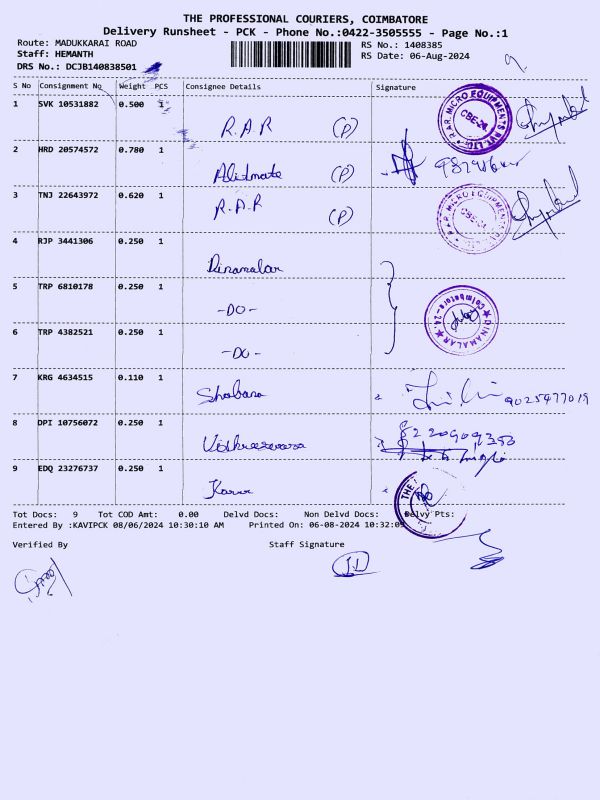 THE PROFESSIONAL COURIERS, COIMBATORE
Delivery Runsheet - PCK - Phone No.:0422-3505555 - Page No.:1
Route: MADUKKARAI ROAD
Staff: HEMANTH
DRS No.: DCJB140838501
RS No.: 1408385
RS Date: 06-Aug-2024
S No Consignment No Weight PCS Consignee Details Signature
1 SVK 10531882 0.500 1 R.A.R (P)
R.A.R. MICRO EQUIPMENTS PVT. LTD. CBE-21.
2 HRD 20574572 0.780 1 (P)
3 TNJ 22643972 0.620 1 R.A.R (P)
4 RJP 3441306 0.250 1 Dinamalar
5 TRP 6810178 0.250 1 -DO-
DINAMALAR Coimbatore-24.
6 TRP 4382521 0.250 1 -DO-
7 KRG 4634515 0.110 1 Shobana 9025477019
8 DPI 10756072 0.250 1
9 EDQ 23276737 0.250 1
Tot Docs: 9 Tot COD Amt: 0.00 Delvd Docs: Non Delvd Docs: Delvy Pts:
Entered By :KAVIPCK 08/06/2024 10:30:10 AM Printed On: 06-08-2024 10:32:09
Verified By Staff Signature